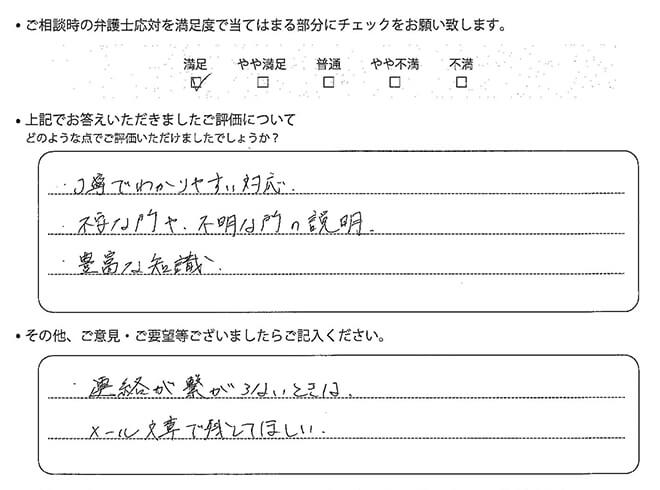 ・ご相談時の弁護士応対を満足度で当てはまる部分にチェックをお願い致します。
満足 やや満足 普通 やや不満 不満
☑ □ □ □ □
・上記でお答えいただきましたご評価について
どのような点でご評価いただけましたでしょうか？
・丁寧でわかりやすい対応.
・不安な所や、不明な所の説明.
・豊富な知識
・その他、ご意見・ご要望等ございましたらご記入ください。
・連絡が繋がらないときは、
メール文章で残してほしい.